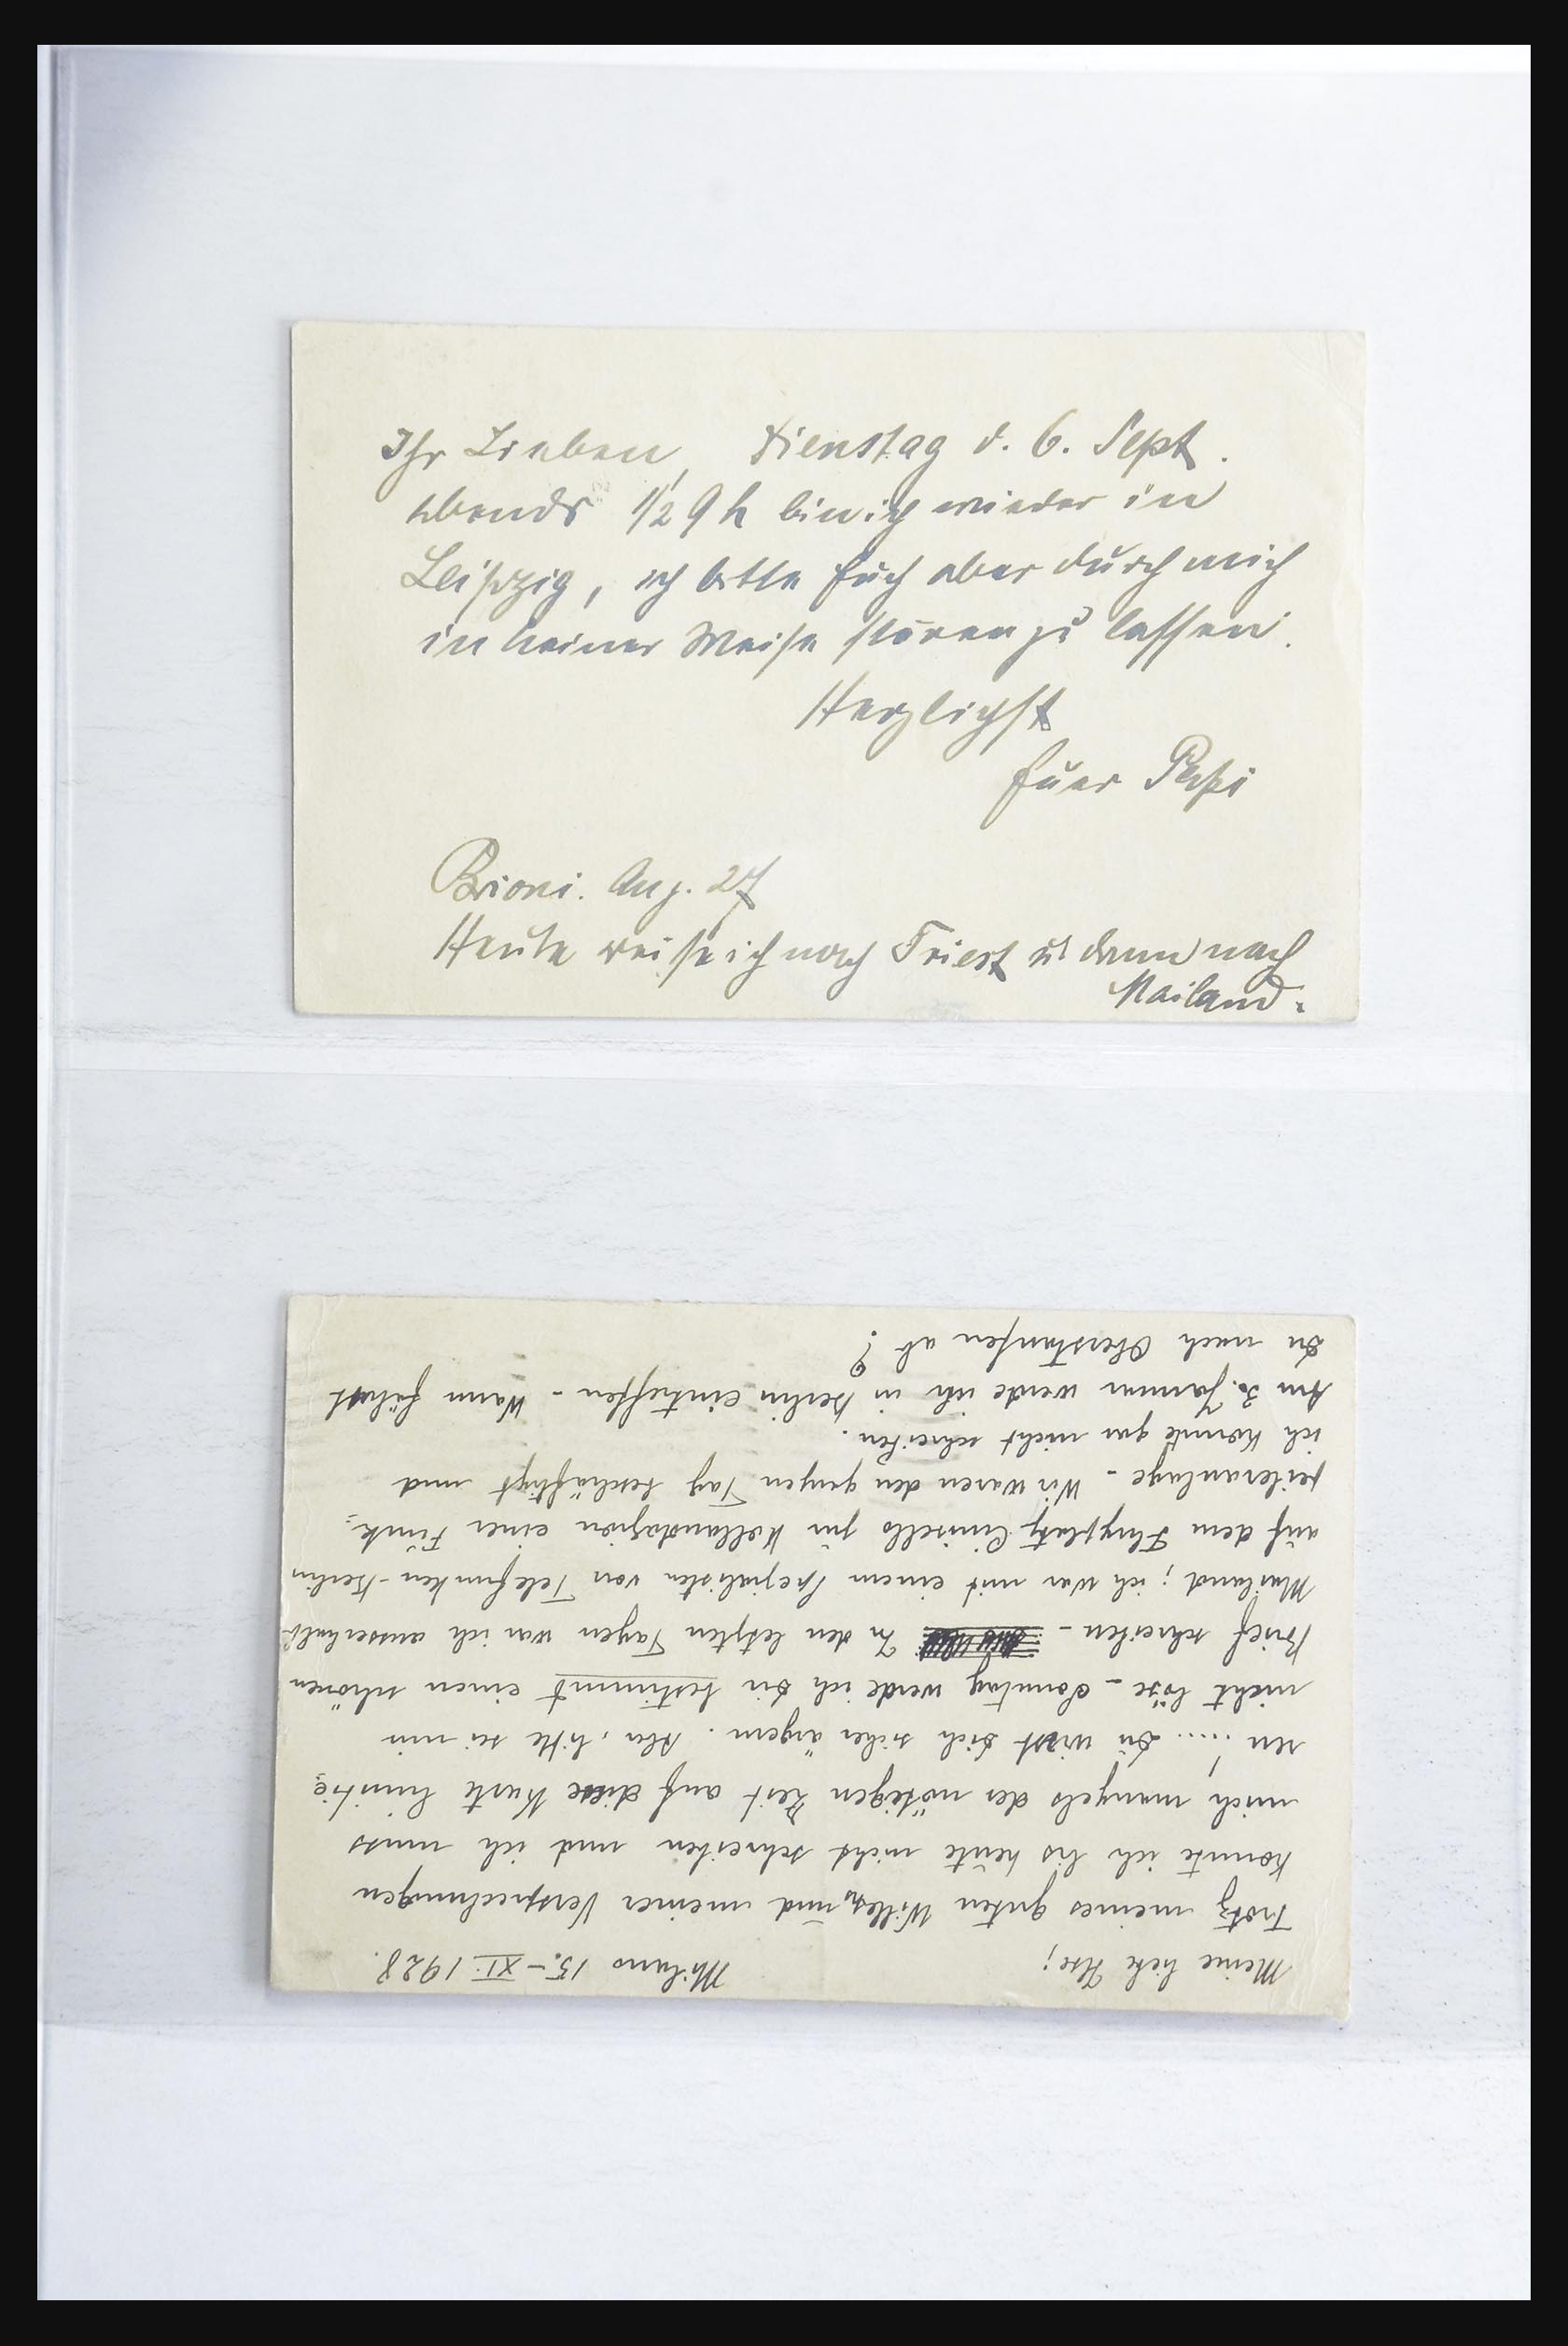 Ihr Lieben, Dienstag d. 6. Sept.
abends 1/2 9 h bin ich wieder in
Leipzig, ich bitte Euch aber durch mich
in keiner Weise stören zu lassen.
Herzlichst
Euer Papi
Brioni. Aug. 27
Heute reise ich nach Triest u. dann nach
Mailand.
Meine liebe Ilse; Milano 15.-XI. 1928.
Trotz meines guten Willens und meiner Versprechungen
konnte ich bis heute nicht schreiben und ich muss
mich mangels der nötigen Zeit auf diese Karte limitie-
ren ! ..... Du wirst dich sicher ärgern. Aber, bitte sei mir
nicht böse - Sonntag werde ich Dir bestimmt einen schönen
Brief schreiben - In den letzten Tagen war ich ausserhalb
Mailand; ich war mit einem Spezialisten von Telefunken-Berlin
auf dem Flugplatz Cinisello zur Kollaudazion einer Funk-
peileranlage - Wir waren den ganzen Tag beschäftigt und
ich konnte gar nicht schreiben.
Am 3. Januar werde ich in Berlin eintreffen - Wann fährst
Du nach Oberstaufen ab ?